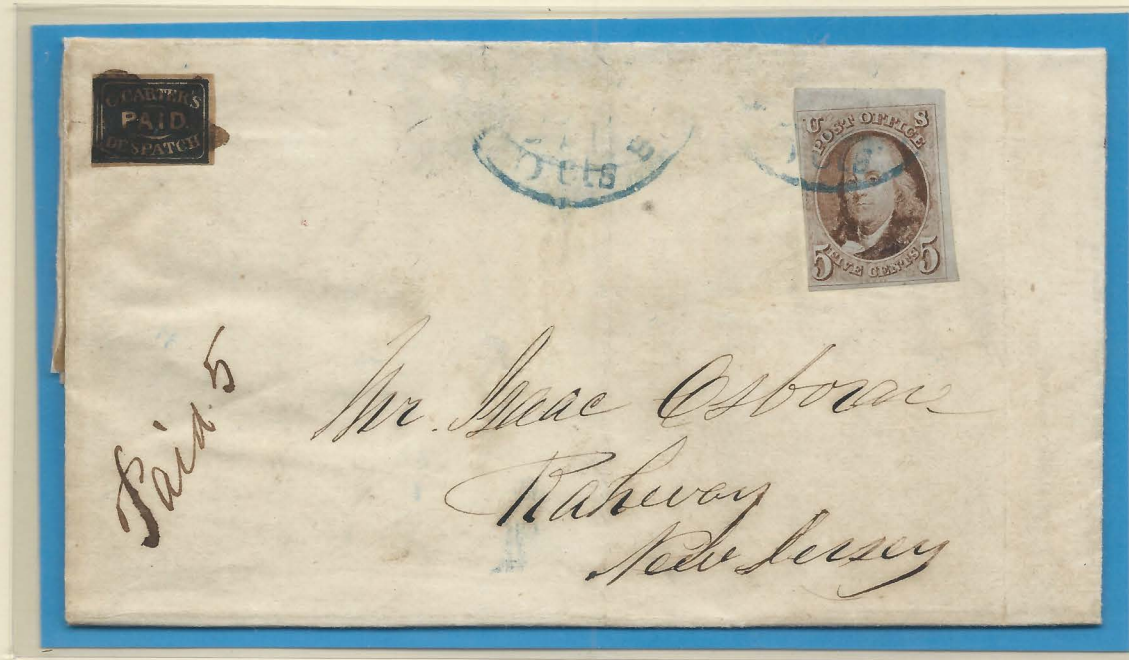 G. CARTER'S
PAID
DESPATCH
U S
POST OFFICE
5 FIVE CENTS 5
Paid. 5
Mr. Isaac Osborne
Rahway
New Jersey